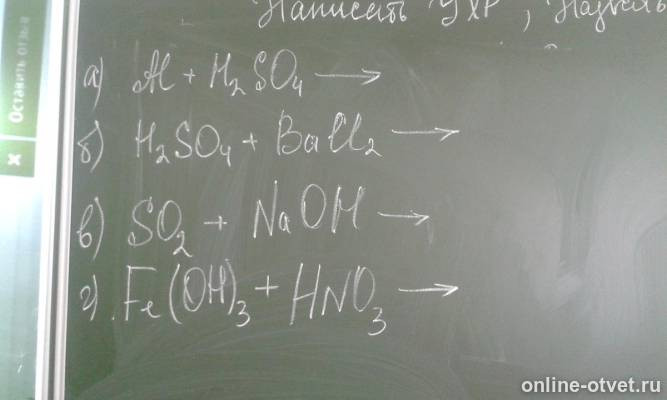 Написать УХР, Назвать
а) Al + H₂SO₄ ⟶
б) H₂SO₄ + BaCl₂ ⟶
в) SO₂ + NaOH ⟶
г) Fe(OH)₃ + HNO₃ ⟶
Оставить отзыв
online-otvet.ru